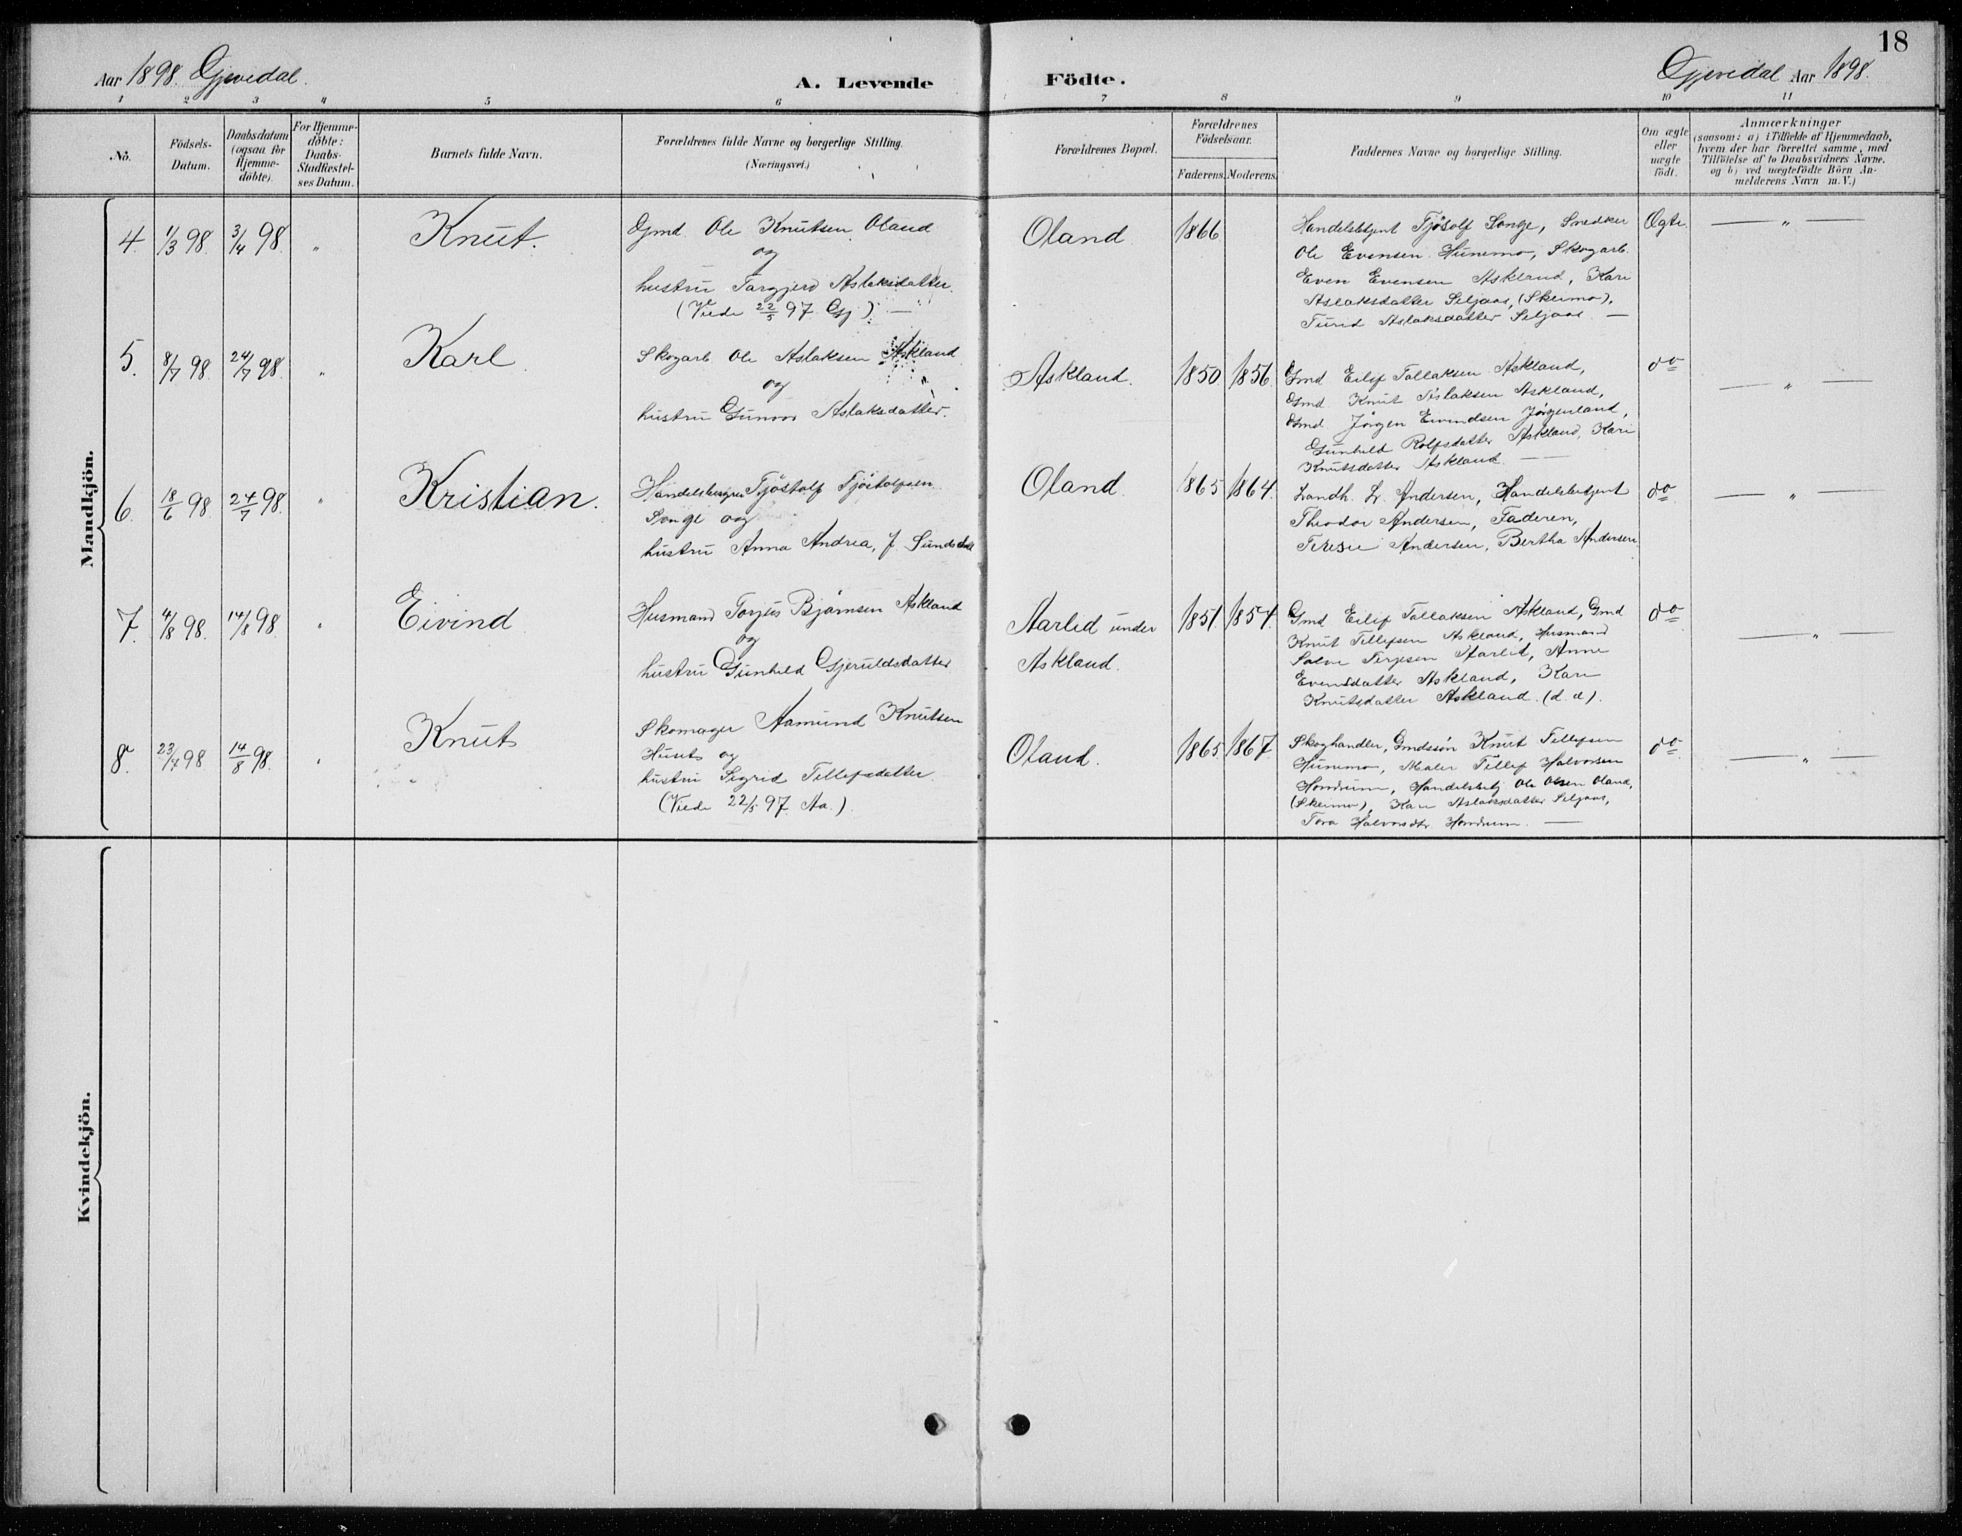 18
Aar 1898. Gjevedal.
A. Levende Födte.
Gjevedal Aar 1898.
1 2 3 4 5 6 7 8 9 10 11
No.
Födsels-Datum.
Daabsdatum (ogsaa for Hjemme-döbte).
For Hjemme-döbte: Daabs-Stadfæstel-ses Datum.
Barnets fulde Navn.
Forældrenes fulde Navne og borgerlige Stilling.
(Næringsvei.)
Forældrenes Bopæl.
Forældrenes Födselsaar.
Faderens. Moderens.
Faddernes Navne og borgerlige Stilling.
Om ægte eller uægte födt.
Anmærkninger
(saasom: a) i Tilfælde af Hjemmedaab,
hvem der har forrettet samme, med
Tilföielse af to Daabsvidners Navne.
og b) ved uægtefödte Börn An-
melderens Navn m. V.)
Mandkjön.
4. 1/3 98. 3/4 98 " Knut.
Gmd. Ole Knutsen Oland
og
hustru Targjerd Aslaksdatter.
(Viede 22/5 97 Gj.) —
Oland 1866
Handelsbetjent Tjøsolf Songe, Snedker
Ole Evensen Hunemo, Skogarb.
Even Evensen Askland, Kari
Aslaksdatter Seljaas, (Skeimo),
Turid Aslaksdatter Seljaas. —
Ægte. — " —
5. 8/7 98. 24/7 98. " Karl
Skogarb Ole Aslaksen Askland
og
hustru Gunvor Aslaksdatter.
Askland. 1850 1856
Gmd Eilif Tallaksen Askland,
Gmd Knut Aslaksen Askland,
Gmd Jörgen Eivindsen Jörgenland,
Gunhild Rolfsdatter Askland, Kari
Knutsdatter Askland. —
do — " —
6. 18/6 98. 24/7 98. " Kristian.
Tjöstolf Tjöstolfsen
Songe og
hustru Anna Andrea, f.
Oland. 1865 1864.
Landh. L. Andersen, Handelsbetjent
Theodor Andersen, Faderen,
Andersen, Bertha Andersen
do — " —
7. 4/8 98. 14/8 98. " Eivind
Husmand Torjus Bjørnsen Askland
og
hustru Gunhild Gjeruldsdatter
Aarlid under
Askland.
1851. 1857.
Gmd Eilif Tallaksen Askland, Gmd
Knut Tellefsen Askland, Husmand
Salve Terjesen Aarlid, Anne
Evensdatter Askland, Kari
Knutsdatter Askland. (d. æ).
do — " —
8. 23/7 98 14/8 98. " Knut
Skomager Aamund Knutsen
og
hustru Sigrid Tellefsdatter
(Viede 22/5 97 Aa.).
Oland. 1865 1867
Skoghandler, Gmdssön Knut Tellefsen
Hunemo, Maler Tellef Halvorsen
Handelsbetj Ole Olsen Oland,
(Skeimo), Kari Aslaksdatter Seljaas,
Tora Halvorsdtr —
do — " —
Kvindekjön.